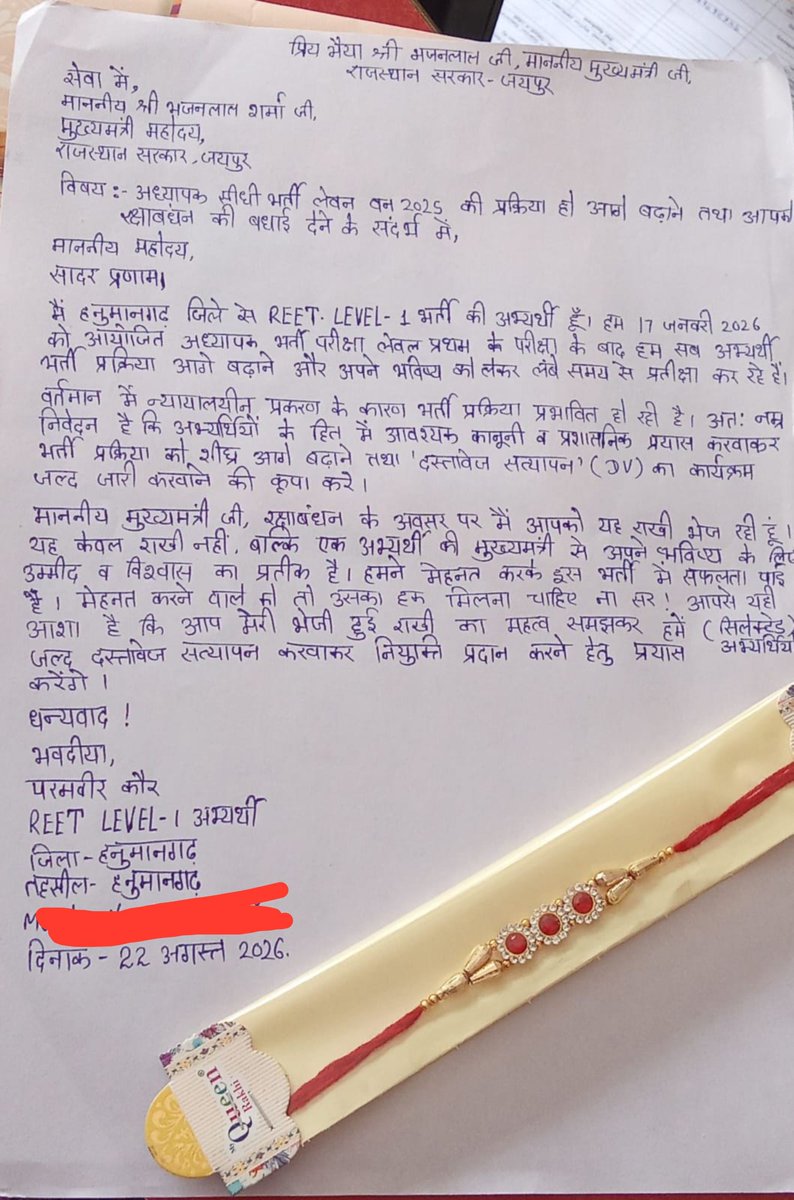 प्रिय भैया श्री भजनलाल जी, माननीय मुख्यमंत्री जी,
राजस्थान सरकार- जयपुर
सेवा में,
माननीय श्री भजनलाल शर्मा जी,
मुख्यमंत्री महोदय,
राजस्थान सरकार, जयपुर
विषय :- अध्यापक सीधी भर्ती लेवल वन 2025 की प्रक्रिया हो आगे बढ़ाने तथा आपको
रक्षाबंधन की बधाई देने के संदर्भ में,
माननीय महोदय,
सादर प्रणाम।
मैं हनुमानगढ़ जिले से REET. LEVEL-1 भर्ती की अभ्यर्थी हूँ। हम 17 जनवरी 2026
को आयोजित अध्यापक भर्ती परीक्षा लेवल प्रथम के परीक्षा के बाद हम सब अभ्यर्थी
भर्ती प्रक्रिया आगे बढ़ाने और अपने भविष्य को लेकर लंबे समय से प्रतीक्षा कर रहे हैं।
वर्तमान में न्यायालयीन प्रकरण के कारण भर्ती प्रक्रिया प्रभावित हो रही है। अतः नम्र
निवेदन है कि अभ्यर्थियों के हित में आवश्यक कानूनी व प्रशासनिक प्रयास करवाकर
भर्ती प्रक्रिया को शीघ्र आगे बढ़ाने तथा 'दस्तावेज सत्यापन' (DV) का कार्यक्रम
जल्द जारी करवाने की कृपा करे।
माननीय मुख्यमंत्री जी, रक्षाबंधन के अवसर पर मैं आपको यह राखी भेज रही हूं।
यह केवल राखी नहीं, बल्कि एक अभ्यर्थी की मुख्यमंत्री से अपने भविष्य के लिए
उम्मीद व विश्वास का प्रतीक है। हमने मेहनत करके इस भर्ती में सफलता पाई
है। मेहनत करने वाले को तो उसका हक मिलना चाहिए ना सर! आपसे यही
आशा है कि आप मेरी भेजी हुई राखी का महत्व समझकर हमें (सिलेक्टेड)
जल्द दस्तावेज सत्यापन करवाकर नियुक्ति प्रदान करने हेतु प्रयास अभ्यर्थियों
करेंगे।
धन्यवाद !
भवदीया,
परमवीर कौर
REET LEVEL-1 अभ्यर्थी
जिला - हनुमानगढ़
तहसील- हनुमानगढ़
दिनाक - 22 अगस्त 2026.
Queen
Rakhi